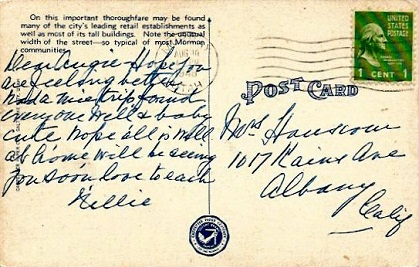 On this important thoroughfare may be found
many of the city's leading retail establishments as
well as most of its tall buildings. Note the unusual
width of the street—so typical of most Mormon
communities.
Hope you
are feeling better
had a nice trip found
everyone well & baby
cute hope all is well
at home will be seeing
you soon love to each
Nellie
UTAH
UNITED STATES
POSTAGE
1 CENT 1
POST CARD
Mrs Hanscom
1017 Kains Ave
Albany
Calif